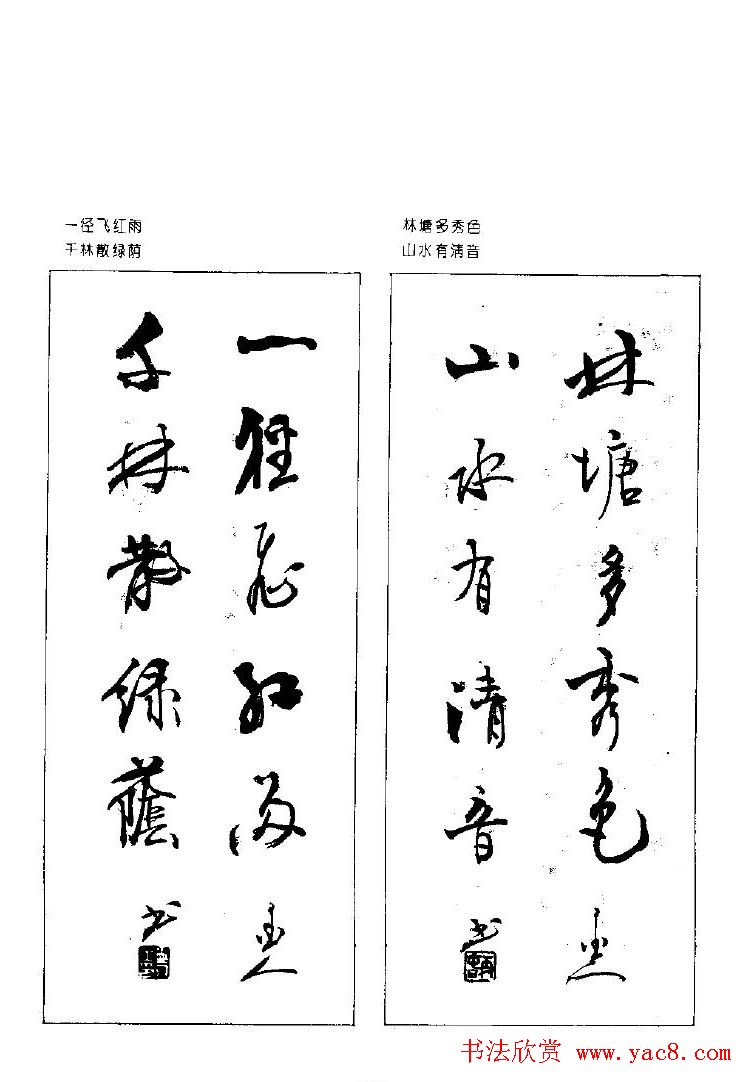 一径飞红雨
千林散绿荫
林塘多秀色
山水有清音
一徑飛紅雨
千林散綠蔭
书
林塘多秀色
山水有清音
书
书法欣赏 www.yac8.com